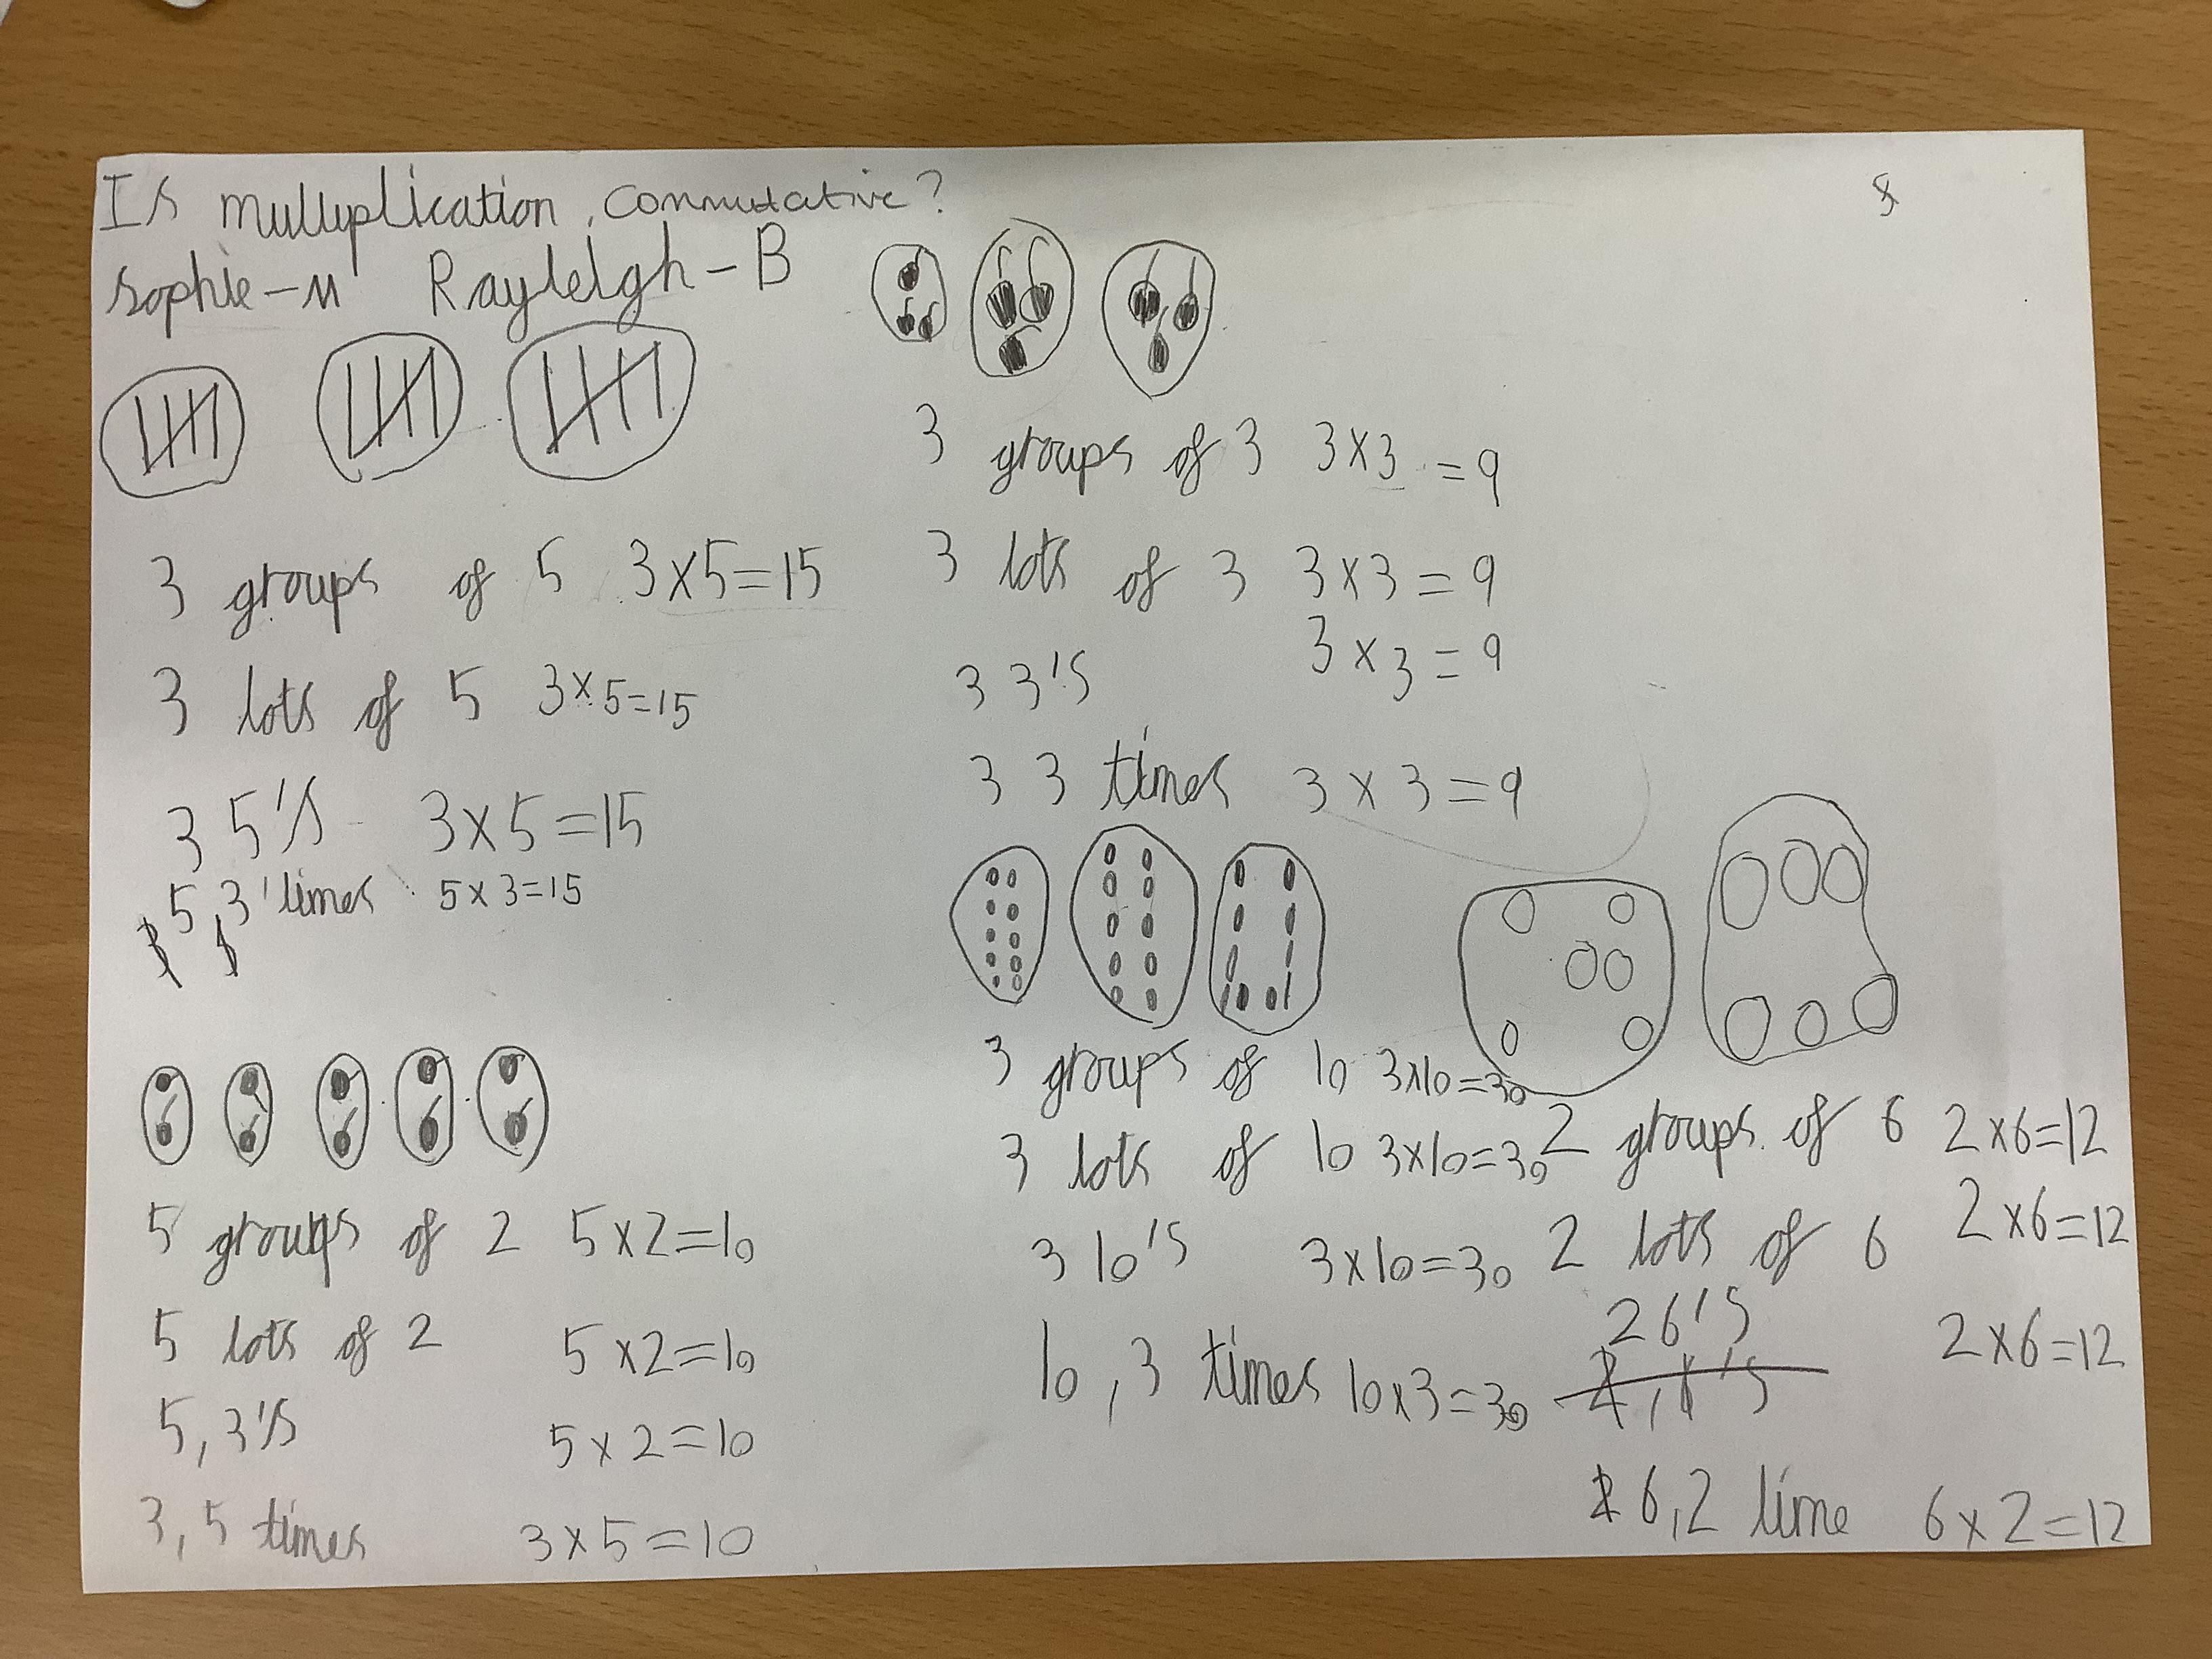 Is mulluplication commutative?
Sophie-M Rayleigh-B
3 groups of 5 3x5=15
3 lots of 5 3x5=15
3 5's 3x5=15
5, 3 times 5x3=15
5 groups of 2 5x2=10
5 lots of 2 5x2=10
5, 3's 5x2=10
3, 5 times 3x5=10
3 groups of 3 3x3=9
3 lots of 3 3x3=9
3 3's 3x3=9
3 3 times 3x3=9
3 groups of 10 3x10=30
3 lots of 10 3x10=30
3 10's 3x10=30
10, 3 times 10x3=30
2 groups of 6 2x6=12
2 lots of 6 2x6=12
2 6's 2x6=12
6, 2 time 6x2=12